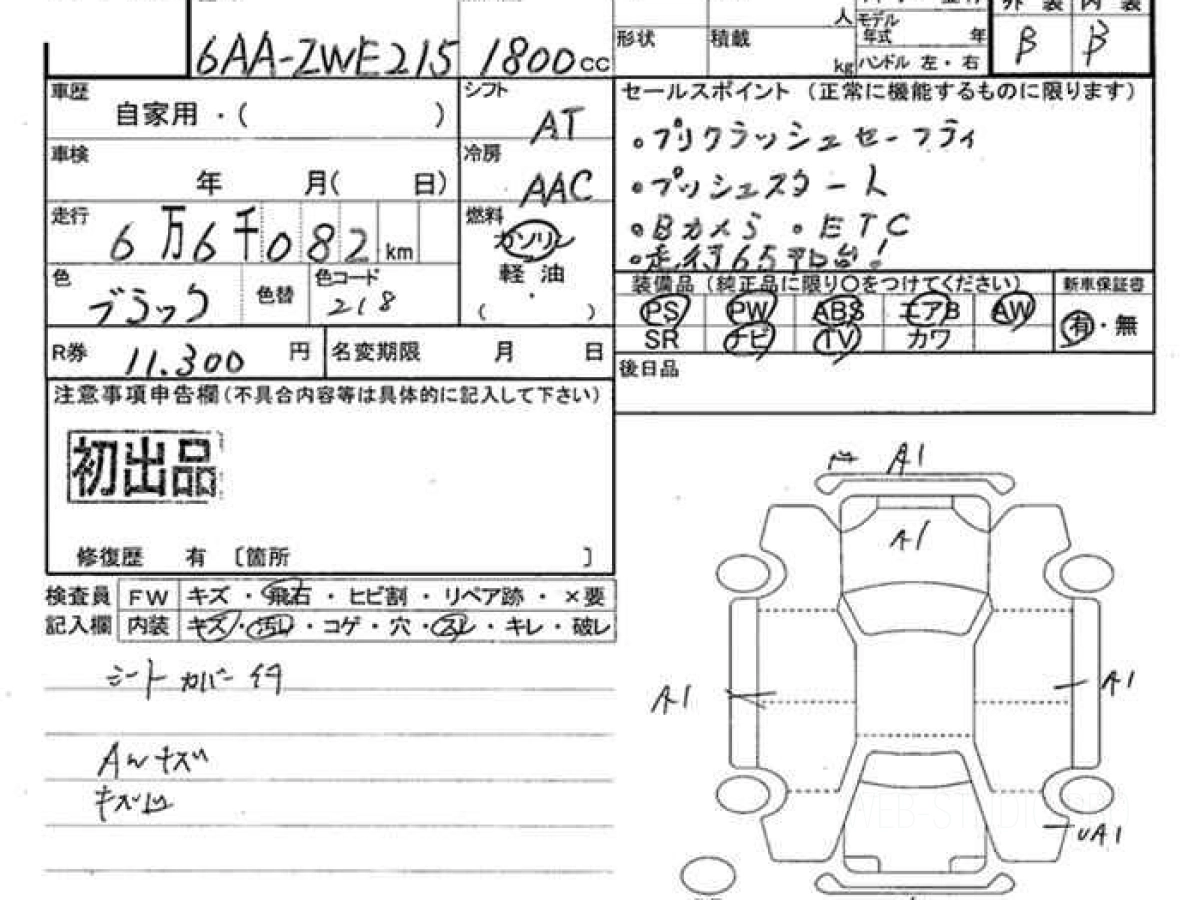 人 モデル 外 装 内 装
形状 積載 kg 年式 年
6AA-ZWE215 1800cc ハンドル 左・右 B B
車歴 自家用・( ) シフト AT
車検 年 月( 日) 冷房 AAC
走行 6万6千082km 燃料 ガソリン
軽油
・
( )
色 ブラック 色替 色コード 218
R券 11.300 円 名変期限 月 日
セールスポイント (正常に機能するものに限ります)
・プリクラッシュセーフティ
・プッシュスタート
・Bカメラ ・ETC
装備品(純正品に限り〇をつけてください) 新車保証書
PS PW ABS エアB AW 有・無
SR ナビ TV カワ
後日品
注意事項申告欄(不具合内容等は具体的に記入して下さい)
初出品
修復歴 有 〔箇所 〕
検査員 FW キズ・飛石・ヒビ割・リペア跡・×要
記入欄 内装 キズ・汚レ・コゲ・穴・スレ・キレ・破レ
シートカバー付
AWキズ
A1
A1
A1
A1
UA1